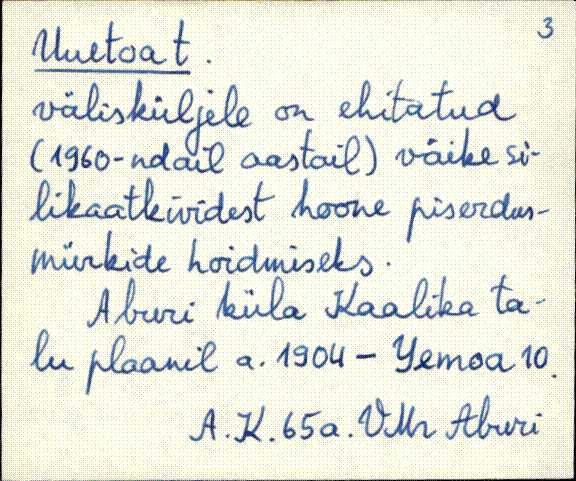 3
Uuetoa t.
välisküljele on ehitatud
(1960-ndail aastail) väike si-
likaatkividest hoone piserdus-
mürkide hoidmiseks.
Aburi küla Kaalika ta-
lu plaanil a. 1904 – Yemoa 10.
A.K. 65a. VMr Aburi